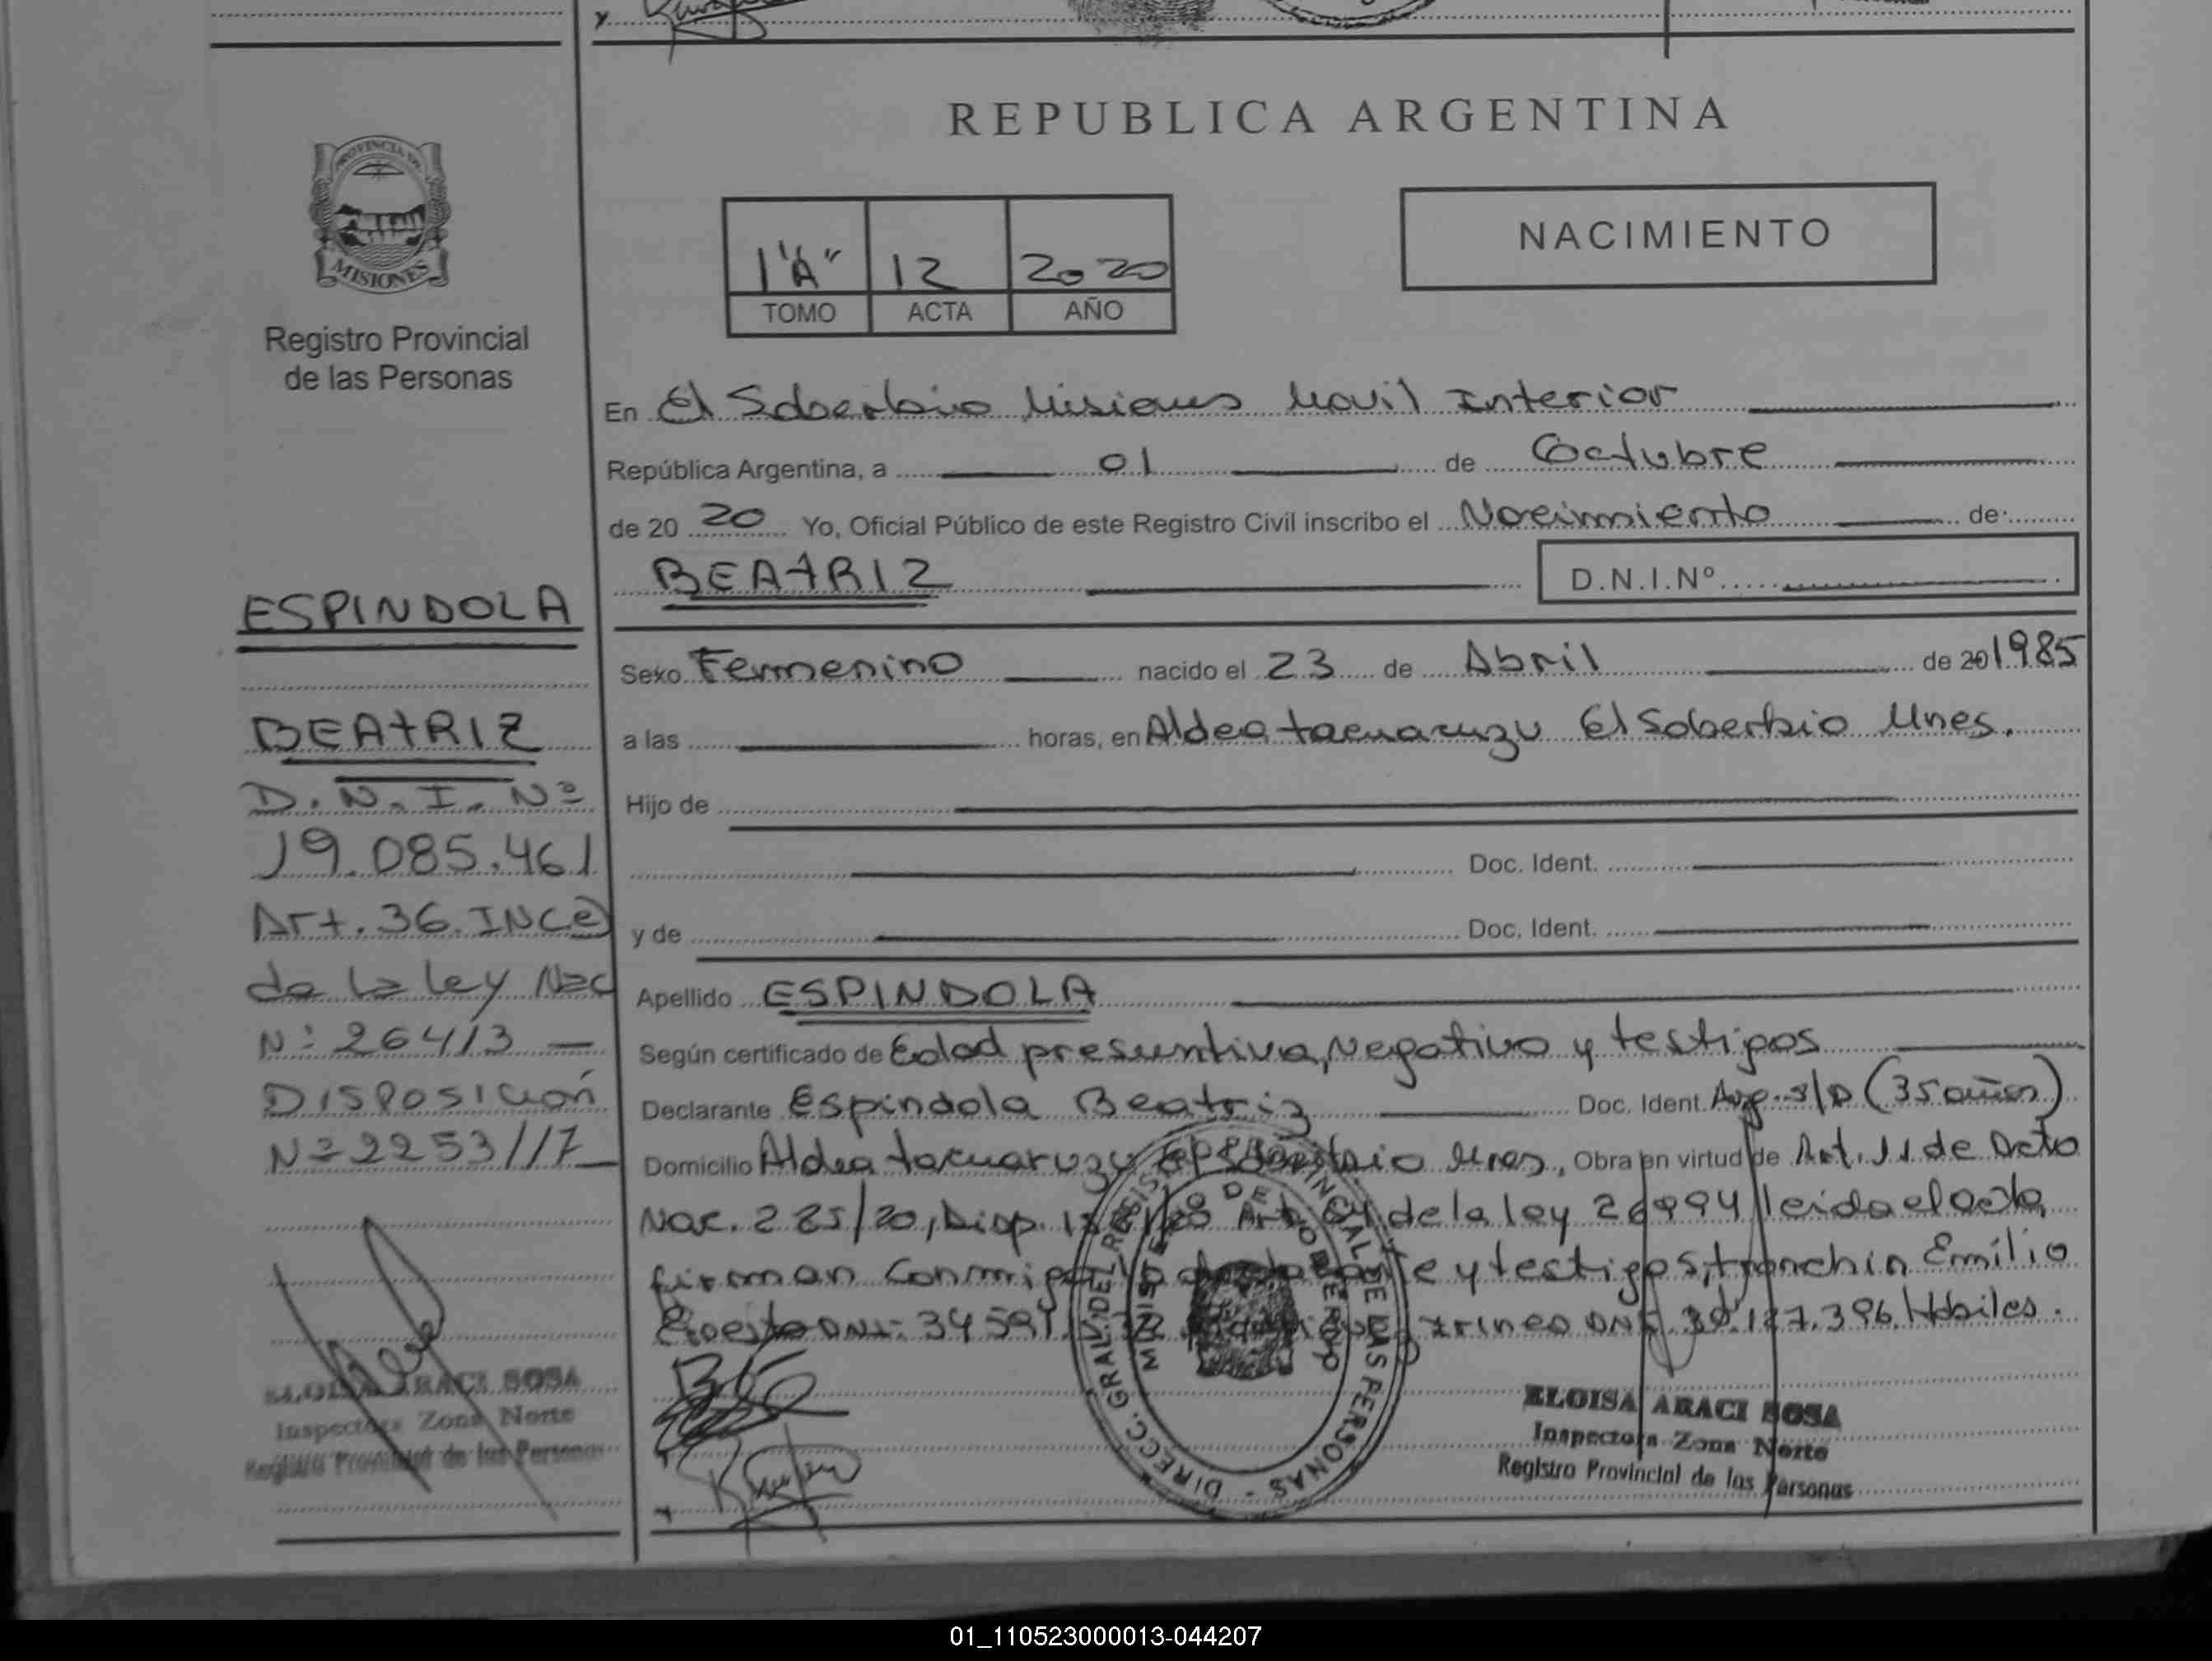 REPUBLICA ARGENTINA
PROVINCIA DE
MISIONES
Registro Provincial
de las Personas
1 "A" 12 2020
TOMO ACTA AÑO
NACIMIENTO
En El Soberbio Misiones Movil Interior
República Argentina, a 01 de Octubre
de 20 20 Yo, Oficial Público de este Registro Civil inscribo el Nacimiento de
BEATRIZ
D.N.I.Nº
Sexo Femenino nacido el 23 de Abril de 20 1985
a las horas, en Aldea tacuaruzu El Soberbio Mnes.
Hijo de
Doc. Ident.
y de Doc. Ident.
Apellido ESPINDOLA
Según certificado de Edad presuntiva, Negativo y testigos
Declarante Espindola Beatriz Doc. Ident. Arg. S/D (35 años)
Domicilio Aldea tacuaruzu Mnes, Obra en virtud de Art. 11 de Dcto
Nac. 285/20, Disp. Art. de la ley 26994 leida el acta
firman conmigo y testigos, Emilio
DNI: 34591 Irineo DNI 127.396 Habiles.
ESPINDOLA
BEATRIZ
D.N.I. Nº
19.085.461
Art. 36 INC e)
de la ley Nac
Nº 26413
DISPOSICIÓN
Nº 2253/17
ELOISA ARACI SOSA
Inspectora Zona Norte
Registro Provincial de las Personas
DIRECC. GRAL. DEL REGIST. PROVINCIAL DE LAS PERSONAS -
MINISTERIO DE GOBIERNO
ELOISA ARACI SOSA
Inspectora Zona Norte
Registro Provincial de las Personas
01_110523000013-044207